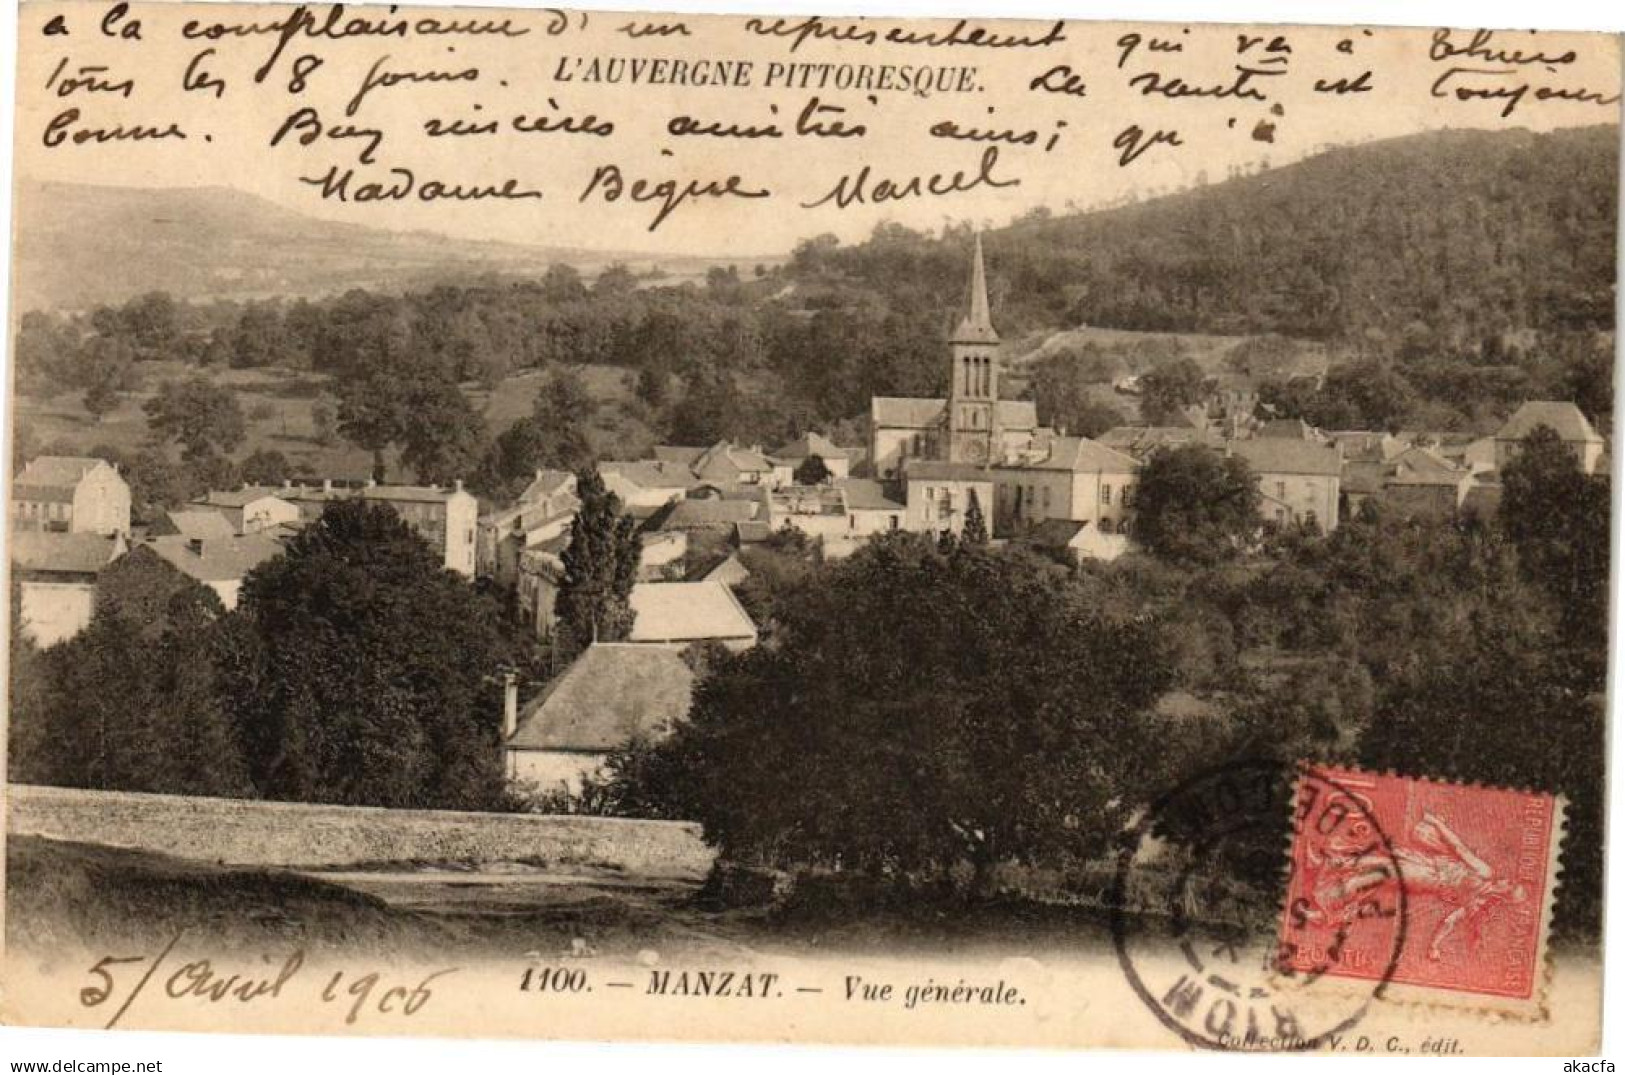 à la complaisance d'un représentant qui va à Thiers
tous les 8 jours. La santé est toujours
L'AUVERGNE PITTORESQUE.
bonne. Bien sincères amitiés ainsi qu'à
Madame Bègue Marcel
5/ Avril 1906
1100. — MANZAT. — Vue générale.
Collection V. D. C., édit.
RIOM
PUY-DE-DOME
10
POSTES
REPUBLIQUE FRANÇAISE
akacfa